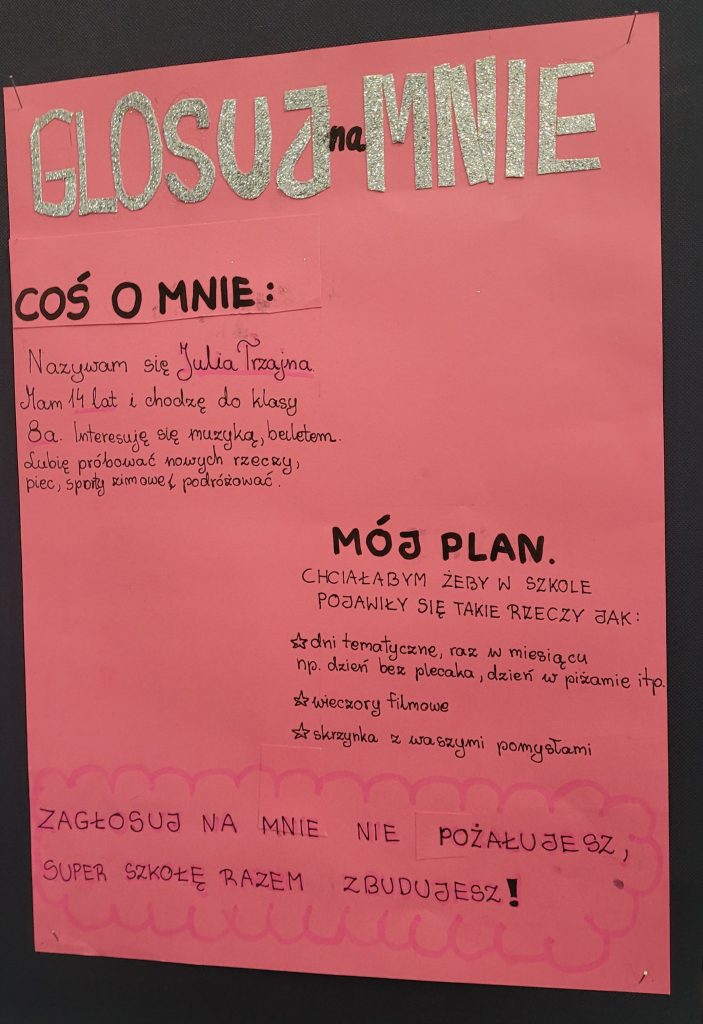 GLOSUJ na MNIE
COŚ O MNIE:
Nazywam się Julia Trzajna.
Mam 14 lat i chodzę do klasy
8a. Interesuję się muzyką, beiletem.
Lubię próbować nowych rzeczy,
piec, sporty zimowe i podróżować.
MÓJ PLAN.
CHCIAŁABYM ŻEBY W SZKOLE
POJAWIŁY SIĘ TAKIE RZECZY JAK:
☆dni tematyczne, raz w miesiącu
np. dzień bez plecaka, dzień w piżamie itp.
☆wieczory filmowe
☆skrzynka z waszymi pomysłami
ZAGŁOSUJ NA MNIE NIE POŻAŁUJESZ,
SUPER SZKOŁĘ RAZEM ZBUDUJESZ!